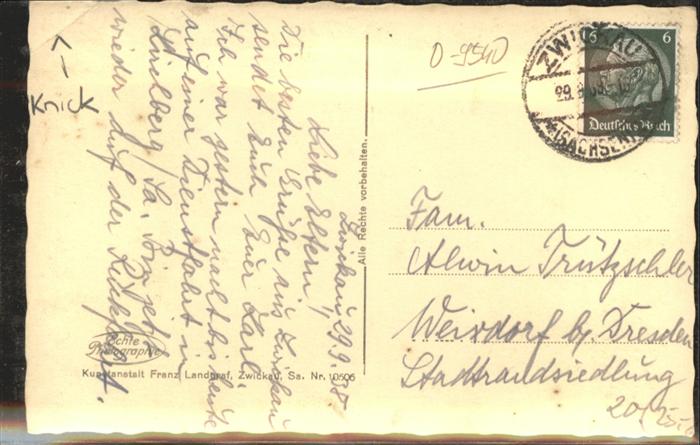 Zwickau 29.9.38
Liebe Eltern!
Die besten Grüße aus Zwickau
sendet Euch Euer Karl.
Ich war gestern nacht bis heute
auf einer Dienstfahrt in
Sa. Bin jetzt
wieder auf der Rückfahrt.
Knick
0-9540
ZWICKAU
29.9.38
(SACHSEN)
6 6
Deutsches Reich
Alle Rechte vorbehalten.
Fam.
Alwin Trützschler
Weixdorf b. Dresden
Stadtrandsiedlung
20
Echte Photographie
Kunstanstalt Franz Landgraf, Zwickau, Sa. Nr. 10506